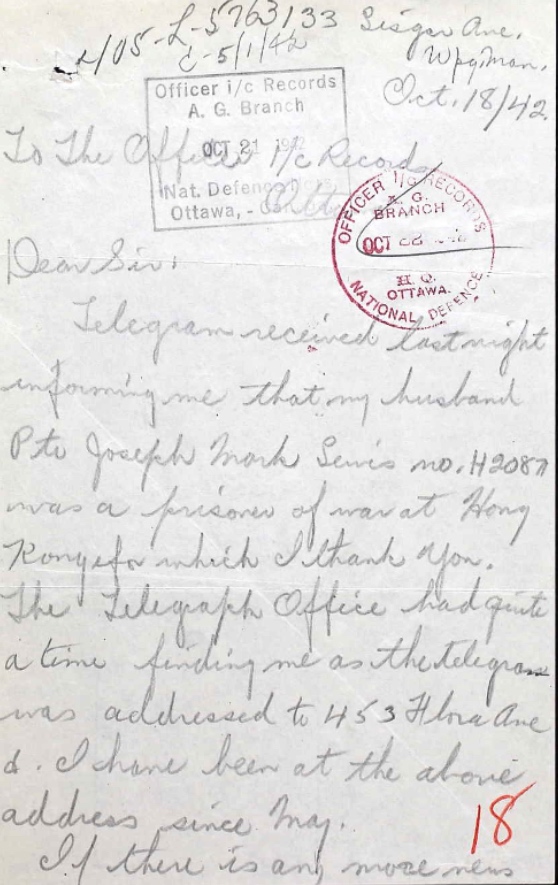 405-L-5763
C-5/1/42
133 Selger Ave.
Wpg. Man.
Oct. 18/42
Officer i/c Records
A. G. Branch
OCT 21 1942
Nat. Defence
Ottawa, -
To The Officer I/c Records
OFFICER I/C RECORDS
A. G.
BRANCH
OCT 22
H. Q.
OTTAWA.
NATIONAL DEFENCE
Dear Sir:
Telegram received last night
informing me that my husband
Pte Joseph Mark Lewis no. H2087
was a prisoner of war at Hong
Kong & for which I thank you.
The Telegraph Office had quite
a time finding me as the telegram
was addressed to 453 Flora Ave
&. I have been at the above
address since May.
18
If there is any more news